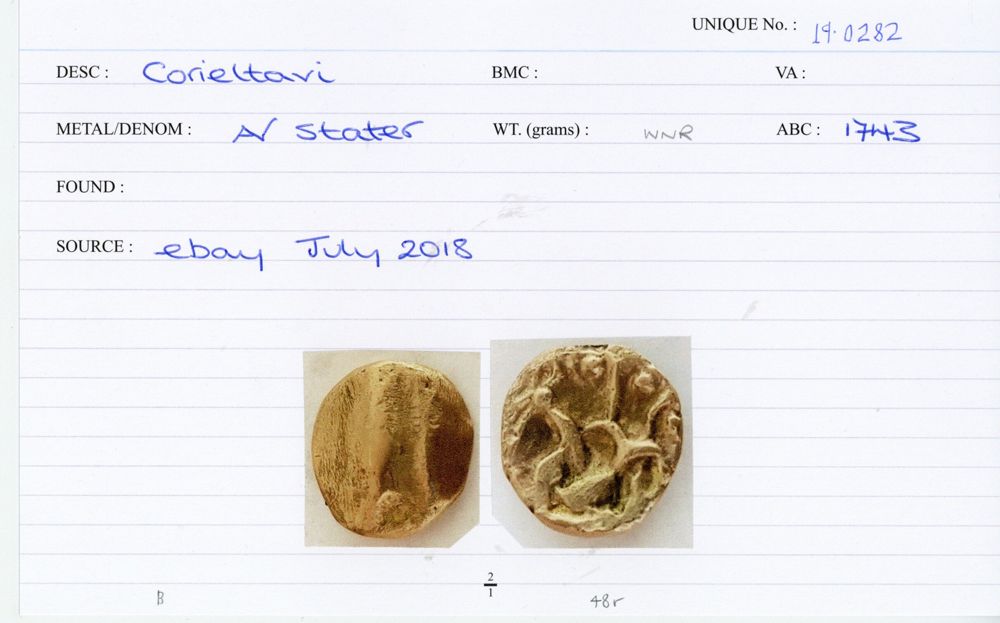 UNIQUE No. : 19.0282
DESC : Corieltavi BMC : VA :
METAL/DENOM : AV Stater WT. (grams) : WNR ABC : 1743
FOUND :
SOURCE : ebay July 2018
2
1
B 48r